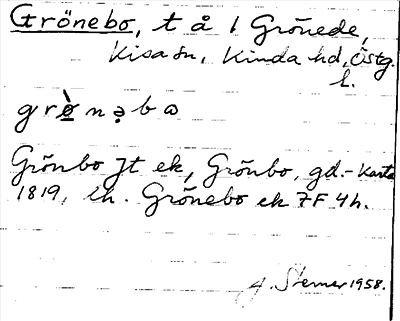 Grönebo, t å 1 Grönede,
Kisa sn, Kinda hd, Östg.
l.
grö̀nəbo
Grönbo Jt ek, Grönbo, gd.- Karta
1819, lh. Grönebo ek 7F 4h.
J. Sterner 1958.